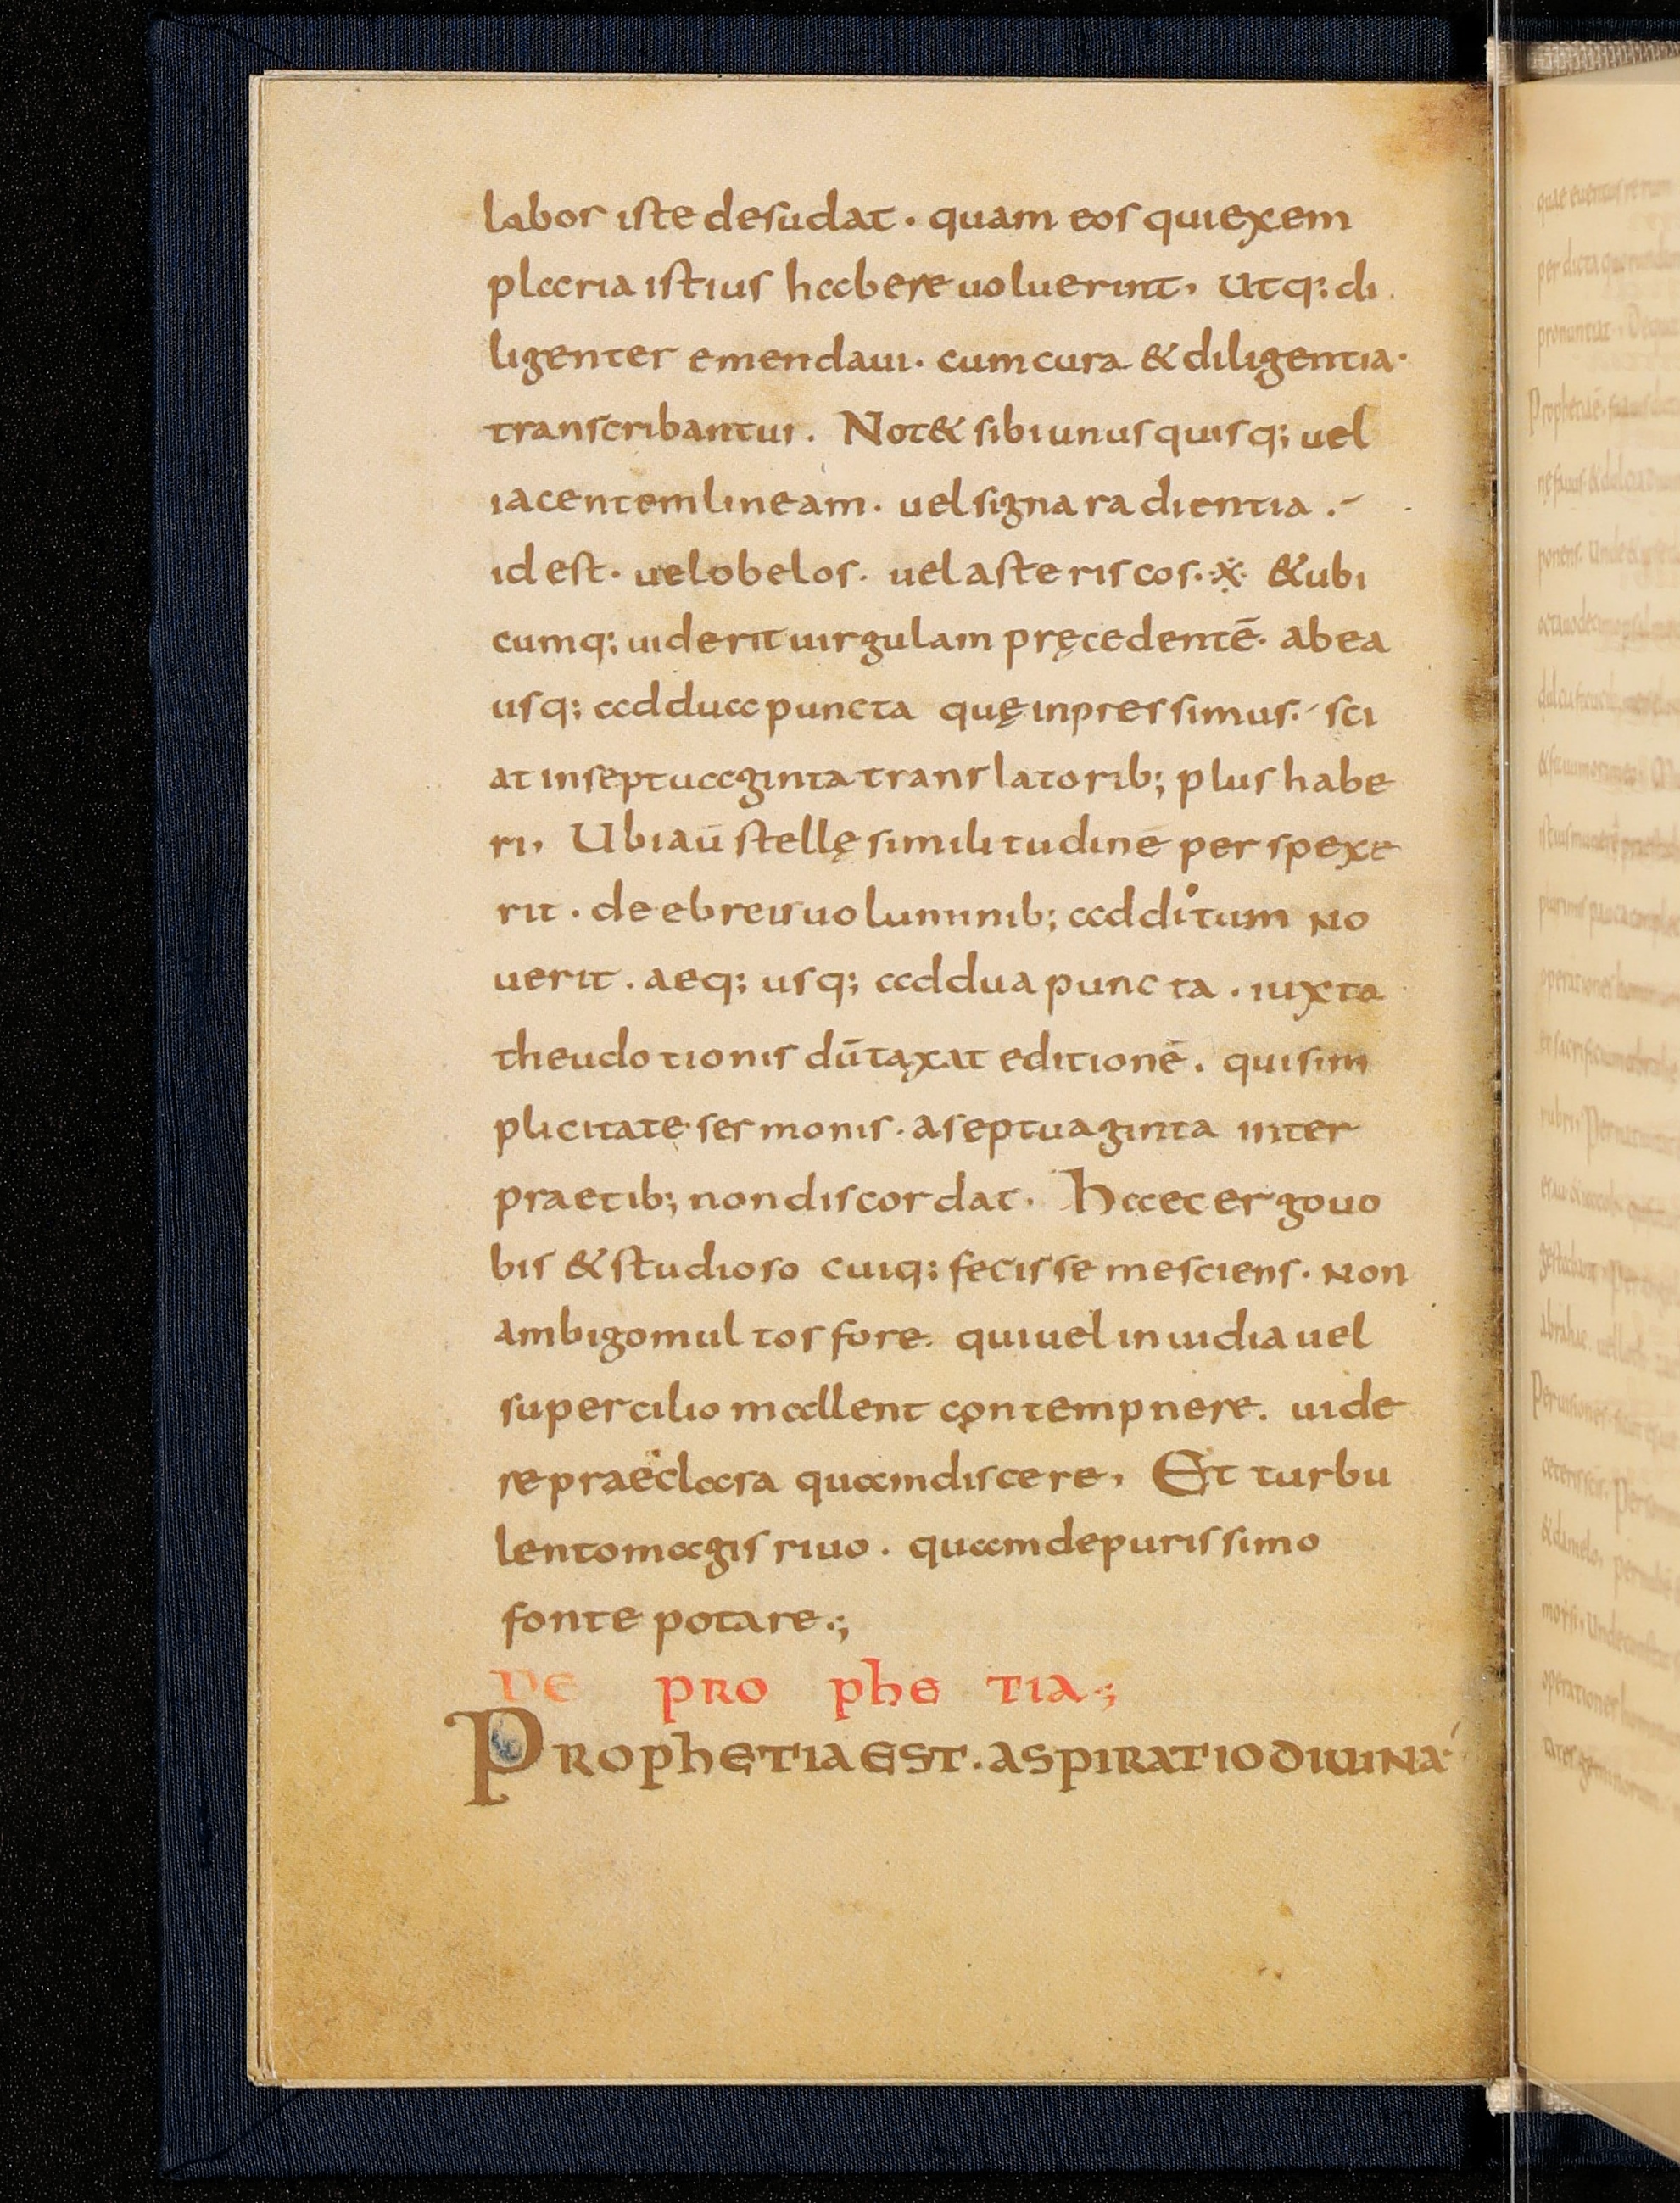 labor iste desudat · quam eos qui exem
plaria istius habere uoluerint, Utq; di
ligenter emendaui · cum cura & diligentia ·
transcribantur . Not& sibi unusquisq; uel
iacentem lineam · uel signa radientia .-
id est · uel obelos · uel asteriscos · ※ & ubi
cumq; uiderit uirgulam pręcedentē · ab ea
usq; ad dua puncta quę inpressimus ·- sci
at in septuaginta translatorib; plus habe
ri, Ubi aū stellę similitudinē perspexe
rit · de ebreis uoluminib; additum no
uerit . aeq; usq; ad dua puncta . iuxta
theudotionis dūtaxat editionē . qui sim
plicitate sermonis · a septuaginta inter
praetib; non discordat · Haec ergo uo
bis & studioso cuiq; fecisse me sciens · non
ambigo multos fore · qui uel inuidia uel
supercilio mallent contempnere . uide
re praeclara quam discere, Et turbu
lento magis riuo . quam de purissimo
fonte potare .;
DE PROPHETIA .;
PROPHETIA EST . ASPIRATIO DIUINA ·